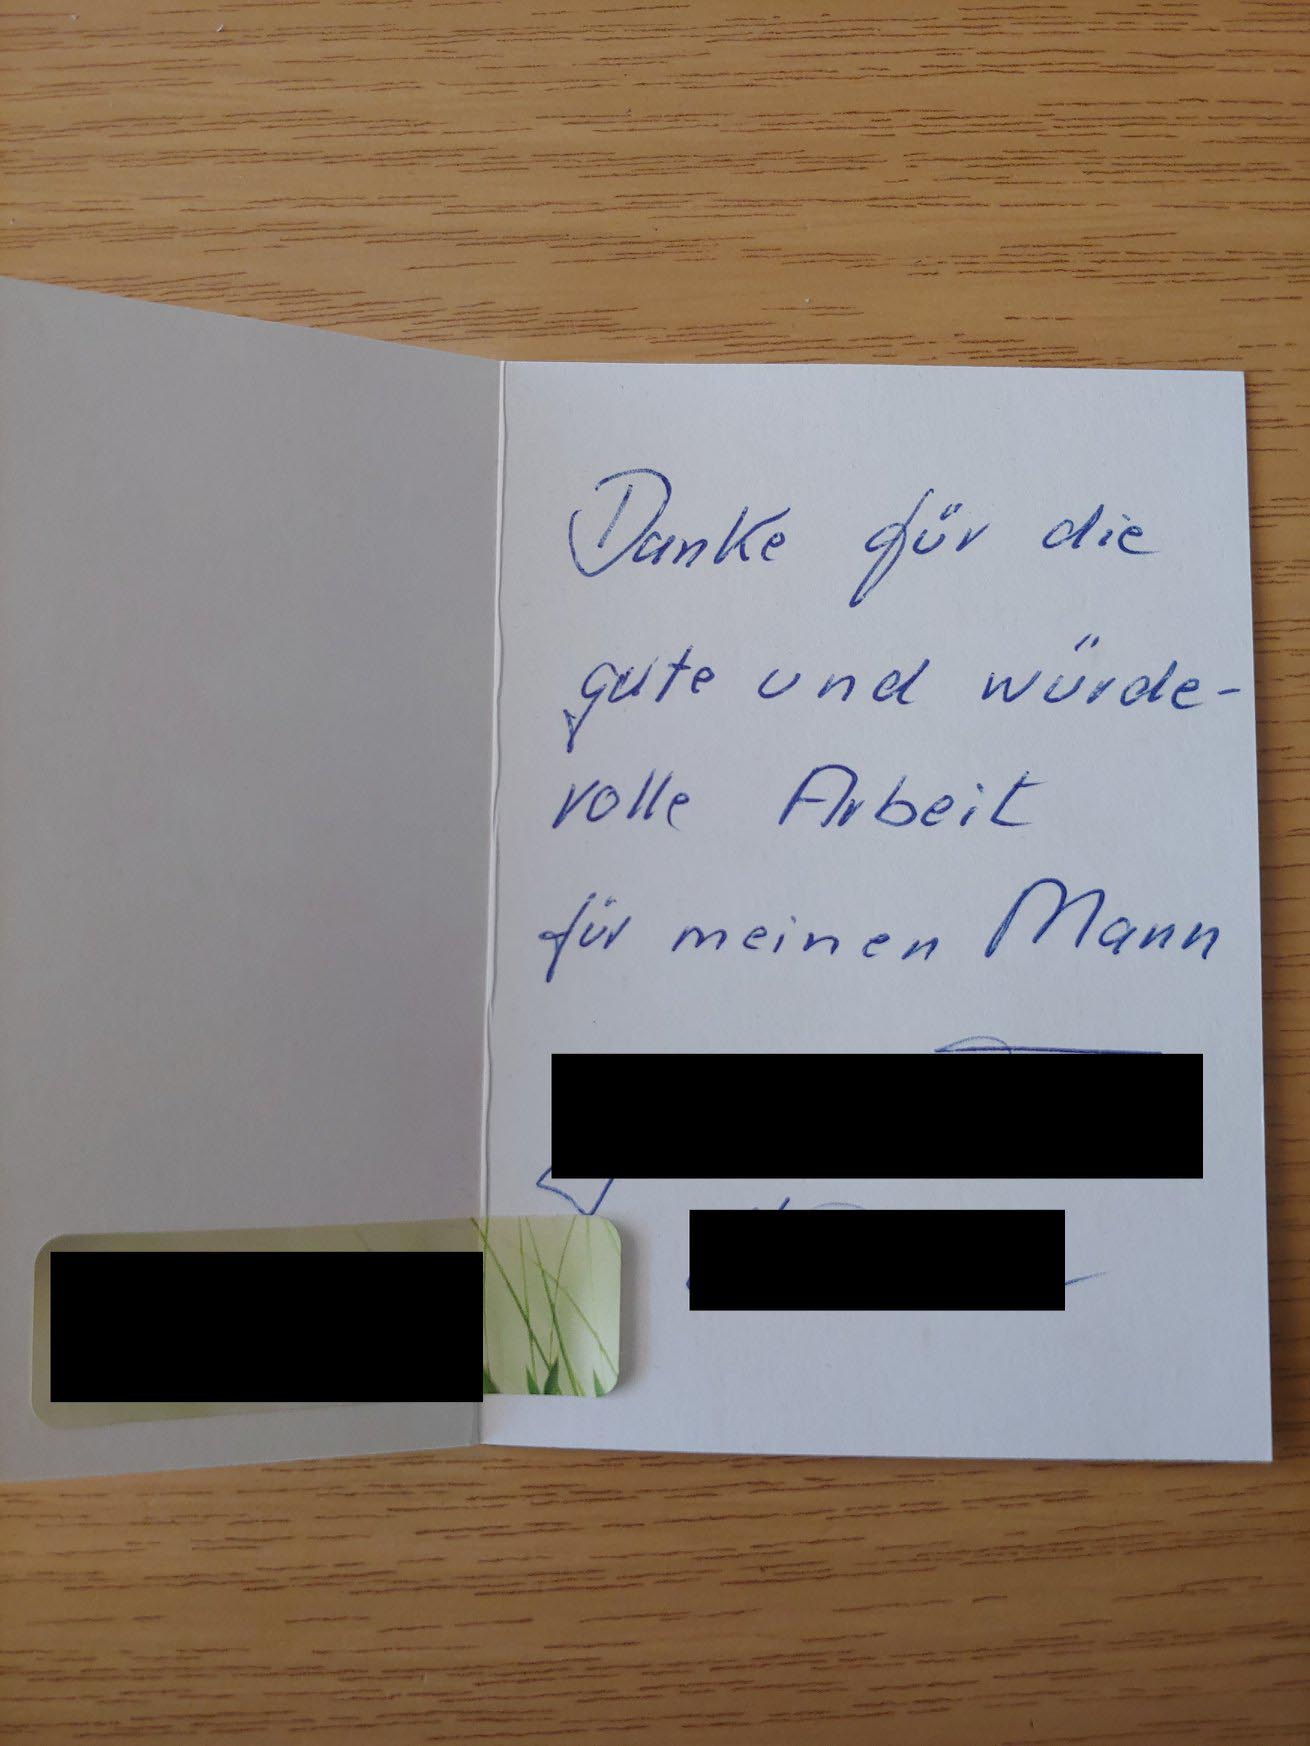 Danke für die
gute und würde-
volle Arbeit
für meinen Mann